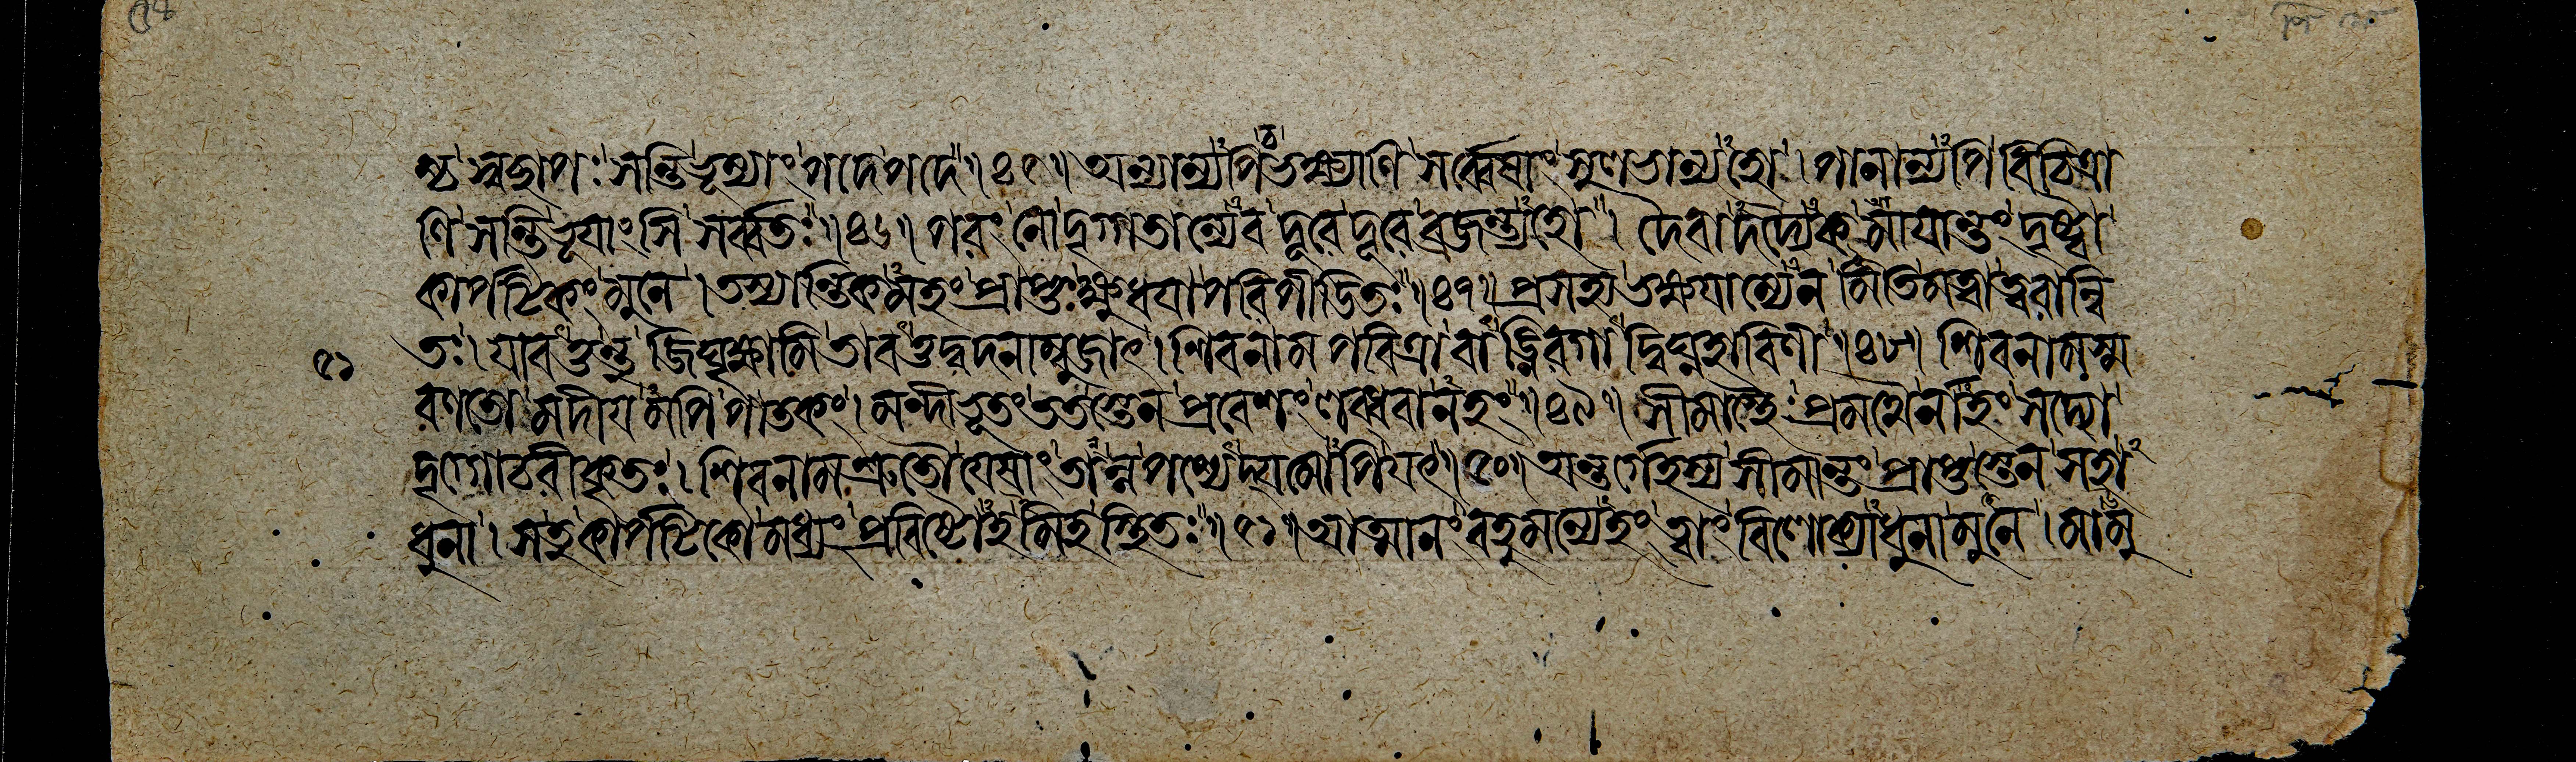 স্বচ্ছাপঃ সন্তি ভূম্যাং পদে পদে ॥৪৫॥ অন্যান্যপি চ ভক্ষ্যাণি সর্ব্বেষাং সুলভান্যহো । পানান্যপি বিচিত্রা
ণি সন্তি ভূয়াংসি সর্ব্বতঃ ॥৪৬॥ পরং নো দৃগ্গতান্যেব দূরে দূরে ব্রজন্ত্যহো । দৈবাদদ্যৈকমায়ান্তং দৃষ্ট্বা
কার্পটিকং মুনে । তস্যান্তিকমহং প্রাপ্তঃ ক্ষুধয়া পরিপীডিতঃ ॥৪৭॥ প্রসহ্য ভক্ষয়াম্যেনমিতি মত্বা ত্বরান্বি
তঃ । যাবত্তন্তু জিঘৃক্ষামি তাবত্তদ্বদনাম্বুজাৎ । শিবনাম পবিত্রা বাঙ্নিরগাদ্বিঘ্নহারিণী ॥৪৮॥ শিবনামস্ম
৫১
রণতো মদীয়মপি পাতকং । মন্দীভূতং ততস্তেন প্রবেশং লব্ধবানহং ॥৪৯॥ সীমাস্থৈঃ প্রমথৈর্নাহং সদ্যো
দৃগ্গোচরীকৃতঃ । শিবনাম শ্রুতৌ যেষাং তান্ন পশ্যেদ্যমোপি যৎ ॥৫০॥ অন্তর্গেহস্য সীমান্তং প্রাপ্তস্তেন সহা
ধুনা । স তু কার্পটিকো মধ্যং প্রবিষ্টোহমিহ স্থিতঃ ॥৫১॥ আত্মানং বহুমন্যেহং ত্বাং বিলোক্যাধুনা মুনে । মামু